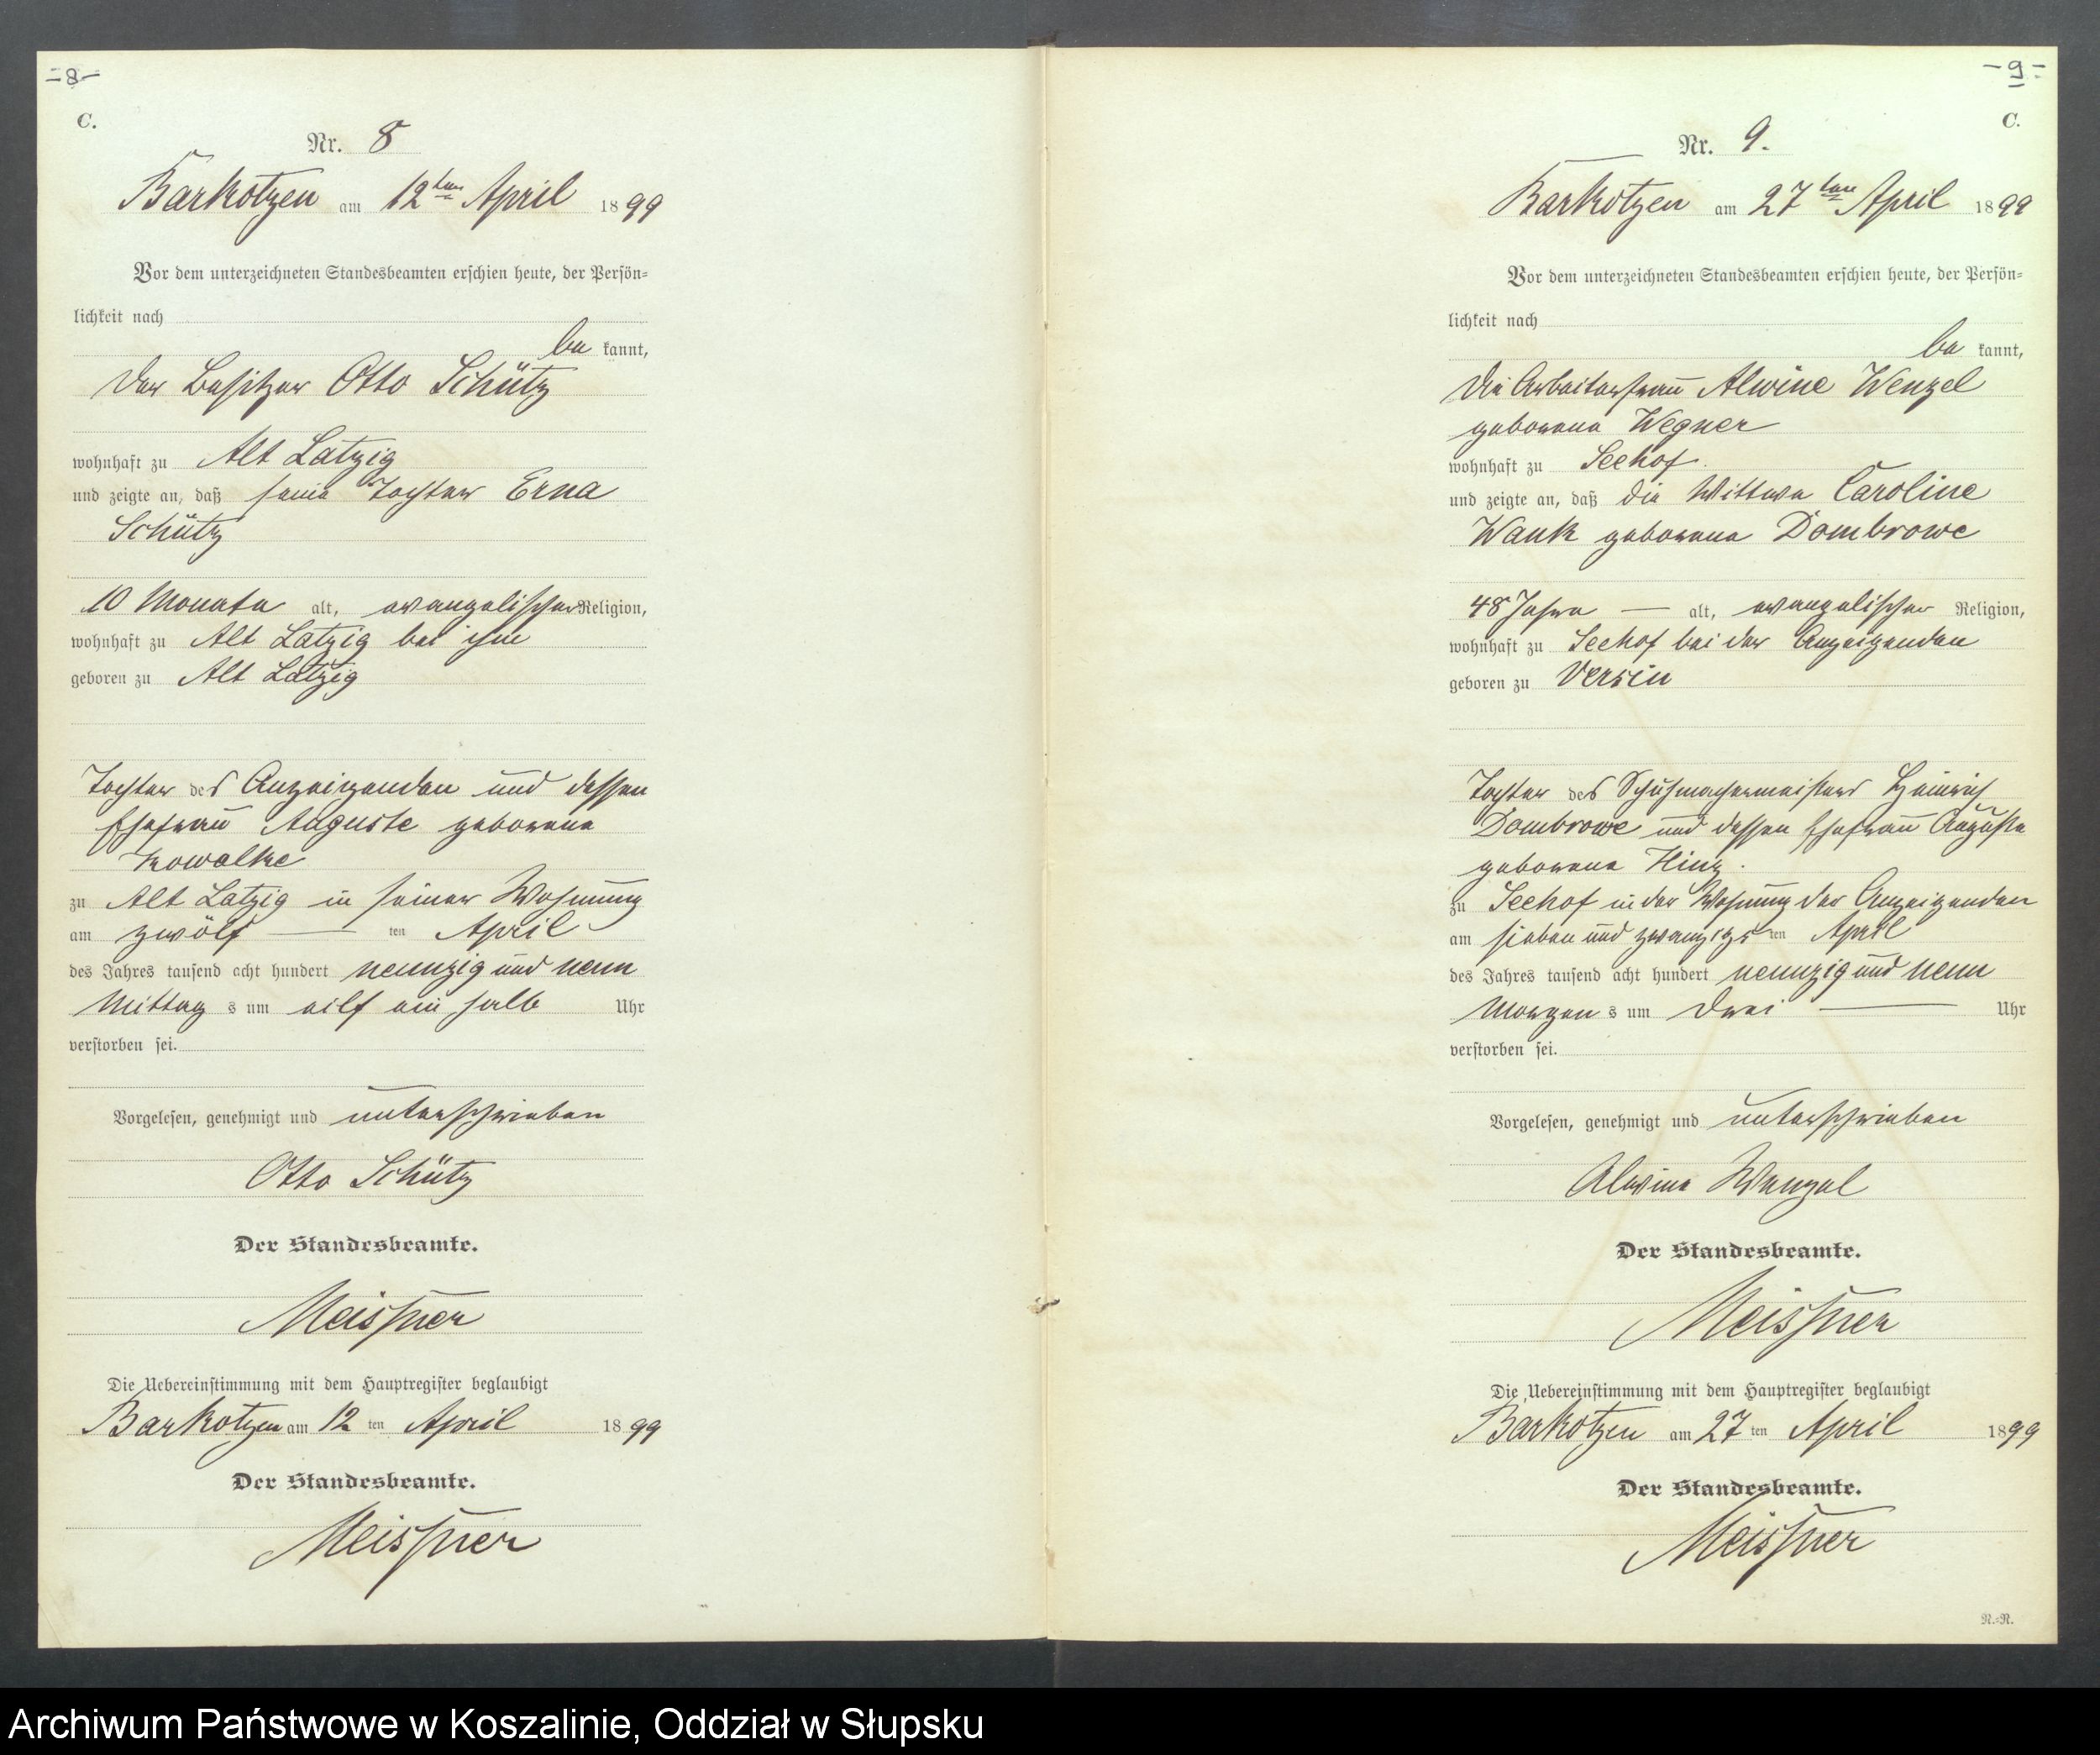 -8-
C.
Nr. 8
Barkotzen am 12ten April 1899
Vor dem unterzeichneten Standesbeamten erschien heute, der Persön-
lichkeit nach
be kannt,
der Besitzer Otto Schütz
wohnhaft zu Alt Latzig
und zeigte an, daß seine Tochter Erna
Schütz
10 Monate alt, evangelischer Religion,
wohnhaft zu Alt Latzig bei ihm
geboren zu Alt Latzig
Tochter des Anzeigenden und dessen
Ehefrau Auguste geborene
Kowalke
zu Alt Latzig in seiner Wohnung
am zwölf ten April
des Jahres tausend acht hundert neunzig und neun
Mittag s um eilf ein halb Uhr
verstorben sei.
Vorgelesen, genehmigt und unterschrieben
Otto Schütz
Der Standesbeamte.
Meissner
Die Uebereinstimmung mit dem Hauptregister beglaubigt
Barkotzen am 12 ten April 1899
Der Standesbeamte.
Meissner
-9-
C.
Nr. 9.
Barkotzen am 27ten April 1899
Vor dem unterzeichneten Standesbeamten erschien heute, der Persön-
lichkeit nach
be kannt,
die Arbeiterfrau Alwine Wenzel
geborene Wegner
wohnhaft zu Seehof.
und zeigte an, daß die Wittwe Caroline
Wank geborene Dombrowe
48 Jahre — alt, evangelischer Religion,
wohnhaft zu Seehof bei der Anzeigenden
geboren zu Versin
Tochter des Schuhmachermeisters Heinrich
Dombrowe und dessen Ehefrau Auguste
geborene Hinz.
zu Seehof in der Wohnung der Anzeigenden
am sieben und zwanzigs ten April
des Jahres tausend acht hundert neunzig und neun
Morgen s um drei — Uhr
verstorben sei.
Vorgelesen, genehmigt und unterschrieben
Alwine Wenzel
Der Standesbeamte.
Meissner
Die Uebereinstimmung mit dem Hauptregister beglaubigt
Barkotzen am 27 ten April 1899
Der Standesbeamte.
Meissner
R.-R.
Archiwum Państwowe w Koszalinie, Oddział w Słupsku